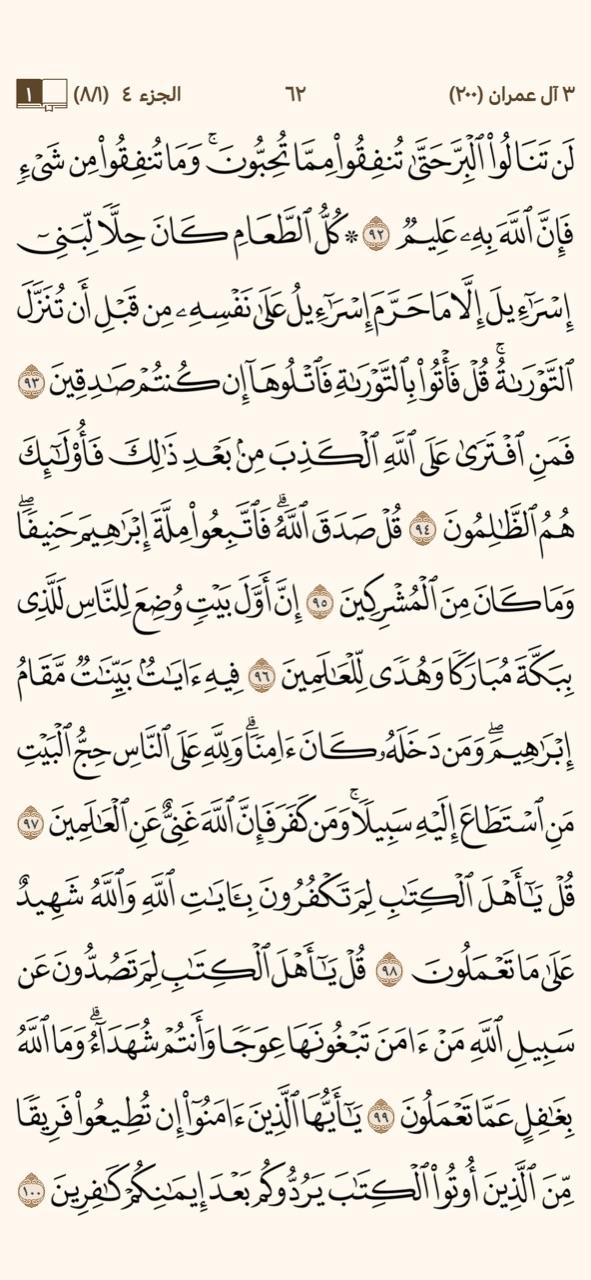 ٣ آل عمران (٢٠٠) ٦٢ الجزء ٤ (٨/١) ١
لَن تَنَالُوا۟ ٱلْبِرَّ حَتَّىٰ تُنفِقُوا۟ مِمَّا تُحِبُّونَ ۚ وَمَا تُنفِقُوا۟ مِن شَىْءٍ
فَإِنَّ ٱللَّهَ بِهِۦ عَلِيمٌ ٩٢ ۞ كُلُّ ٱلطَّعَامِ كَانَ حِلًّا لِّبَنِىٓ
إِسْرَٰٓءِيلَ إِلَّا مَا حَرَّمَ إِسْرَٰٓءِيلُ عَلَىٰ نَفْسِهِۦ مِن قَبْلِ أَن تُنَزَّلَ
ٱلتَّوْرَىٰةُ ۗ قُلْ فَأْتُوا۟ بِٱلتَّوْرَىٰةِ فَٱتْلُوهَآ إِن كُنتُمْ صَـٰدِقِينَ ٩٣
فَمَنِ ٱفْتَرَىٰ عَلَى ٱللَّهِ ٱلْكَذِبَ مِنۢ بَعْدِ ذَٰلِكَ فَأُو۟لَـٰٓئِكَ
هُمُ ٱلظَّـٰلِمُونَ ٩٤ قُلْ صَدَقَ ٱللَّهُ ۗ فَٱتَّبِعُوا۟ مِلَّةَ إِبْرَٰهِيمَ حَنِيفًا ۖ
وَمَا كَانَ مِنَ ٱلْمُشْرِكِينَ ٩٥ إِنَّ أَوَّلَ بَيْتٍ وُضِعَ لِلنَّاسِ لَلَّذِى
بِبَكَّةَ مُبَارَكًا وَهُدًى لِّلْعَـٰلَمِينَ ٩٦ فِيهِ ءَايَـٰتٌۢ بَيِّنَـٰتٌ مَّقَامُ
إِبْرَٰهِيمَ ۖ وَمَن دَخَلَهُۥ كَانَ ءَامِنًا ۗ وَلِلَّهِ عَلَى ٱلنَّاسِ حِجُّ ٱلْبَيْتِ
مَنِ ٱسْتَطَاعَ إِلَيْهِ سَبِيلًا ۚ وَمَن كَفَرَ فَإِنَّ ٱللَّهَ غَنِىٌّ عَنِ ٱلْعَـٰلَمِينَ ٩٧
قُلْ يَـٰٓأَهْلَ ٱلْكِتَـٰبِ لِمَ تَكْفُرُونَ بِـَٔايَـٰتِ ٱللَّهِ وَٱللَّهُ شَهِيدٌ
عَلَىٰ مَا تَعْمَلُونَ ٩٨ قُلْ يَـٰٓأَهْلَ ٱلْكِتَـٰبِ لِمَ تَصُدُّونَ عَن
سَبِيلِ ٱللَّهِ مَنْ ءَامَنَ تَبْغُونَهَا عِوَجًا وَأَنتُمْ شُهَدَآءُ ۗ وَمَا ٱللَّهُ
بِغَـٰفِلٍ عَمَّا تَعْمَلُونَ ٩٩ يَـٰٓأَيُّهَا ٱلَّذِينَ ءَامَنُوٓا۟ إِن تُطِيعُوا۟ فَرِيقًا
مِّنَ ٱلَّذِينَ أُوتُوا۟ ٱلْكِتَـٰبَ يَرُدُّوكُم بَعْدَ إِيمَـٰنِكُمْ كَـٰفِرِينَ ١٠٠